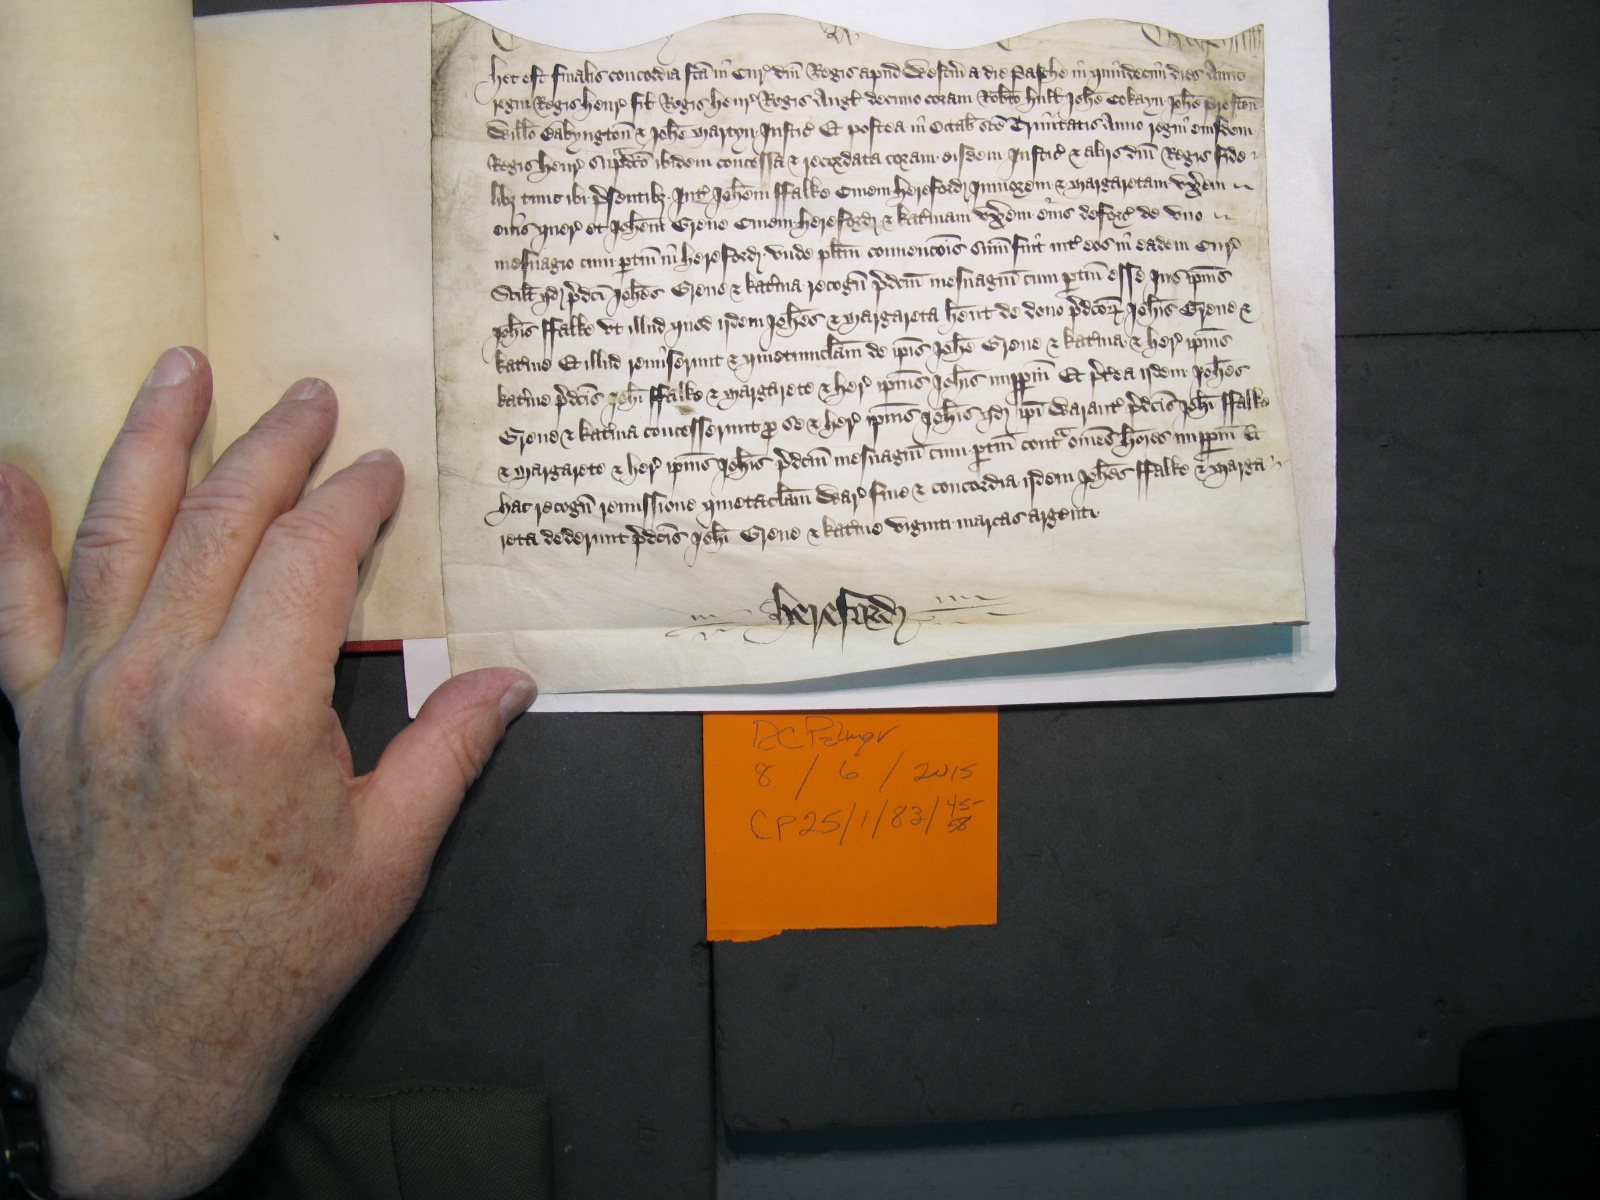 hec est finalis concordia fca in Cur dni Regis apud Westm a die Pasche in quindecim dies Anno
regni Regis henr fil Regis henr Regis Angl decimo coram Robto hull Johe Cokayn Johe Preston
Willo Babyngton & Johe Martyn Justic Et postea in Octab sce Trinitatis Anno regni eiusdem
Regis henr supradco ibidem concessa & recordata coram eisdem Justic & aliis dni Regis fide
libz tunc ibi psentibz Int Johem ffalke Ciuem herefordj Juniorem & Margaretam vxem
eius quer et Johem Grene Ciuem herefordj & katinam vxem eius deforc de vno
mesuagio cum ptin in herefordj vnde plitm conuencois sum fuit int eos in eadem Cur
Scilt qd pdci Johes Grene & katina recogn pdcm mesuagm cum ptin esse Jus ipius
Johis ffalke vt illud quod iidem Johes & Margareta hent de dono pdcor Johis Grene &
katine Et illud remiserunt & quietumclam de ipis Johe Grene & katina & her ipius
katine pdcis Johi ffalke & Margarete & her ipius Johis imppm Et pterea iidem Johes
Grene & katina concesserunt p se & her ipius Johis qd ipi Warant pdcis Johi ffalke
& Margarete & her ipius Johis pdcm mesuagm cum ptin contra omes hoies imppm Et p
hac recogn remissione quietaclam War fine & concordia iidem Johes ffalke & Marga
reta dederunt pdcis Johi Grene & katine viginti marcas argenti
herefordj
DC Palmer
8 / 6 / 2015
CP25/1/83/45-
58